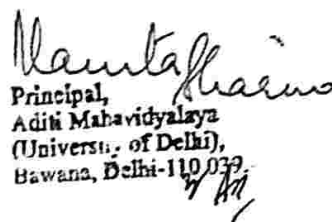 Mamta Sharma
Principal,
Aditi Mahavidyalaya
(University of Delhi),
Bawana, Delhi-110 039